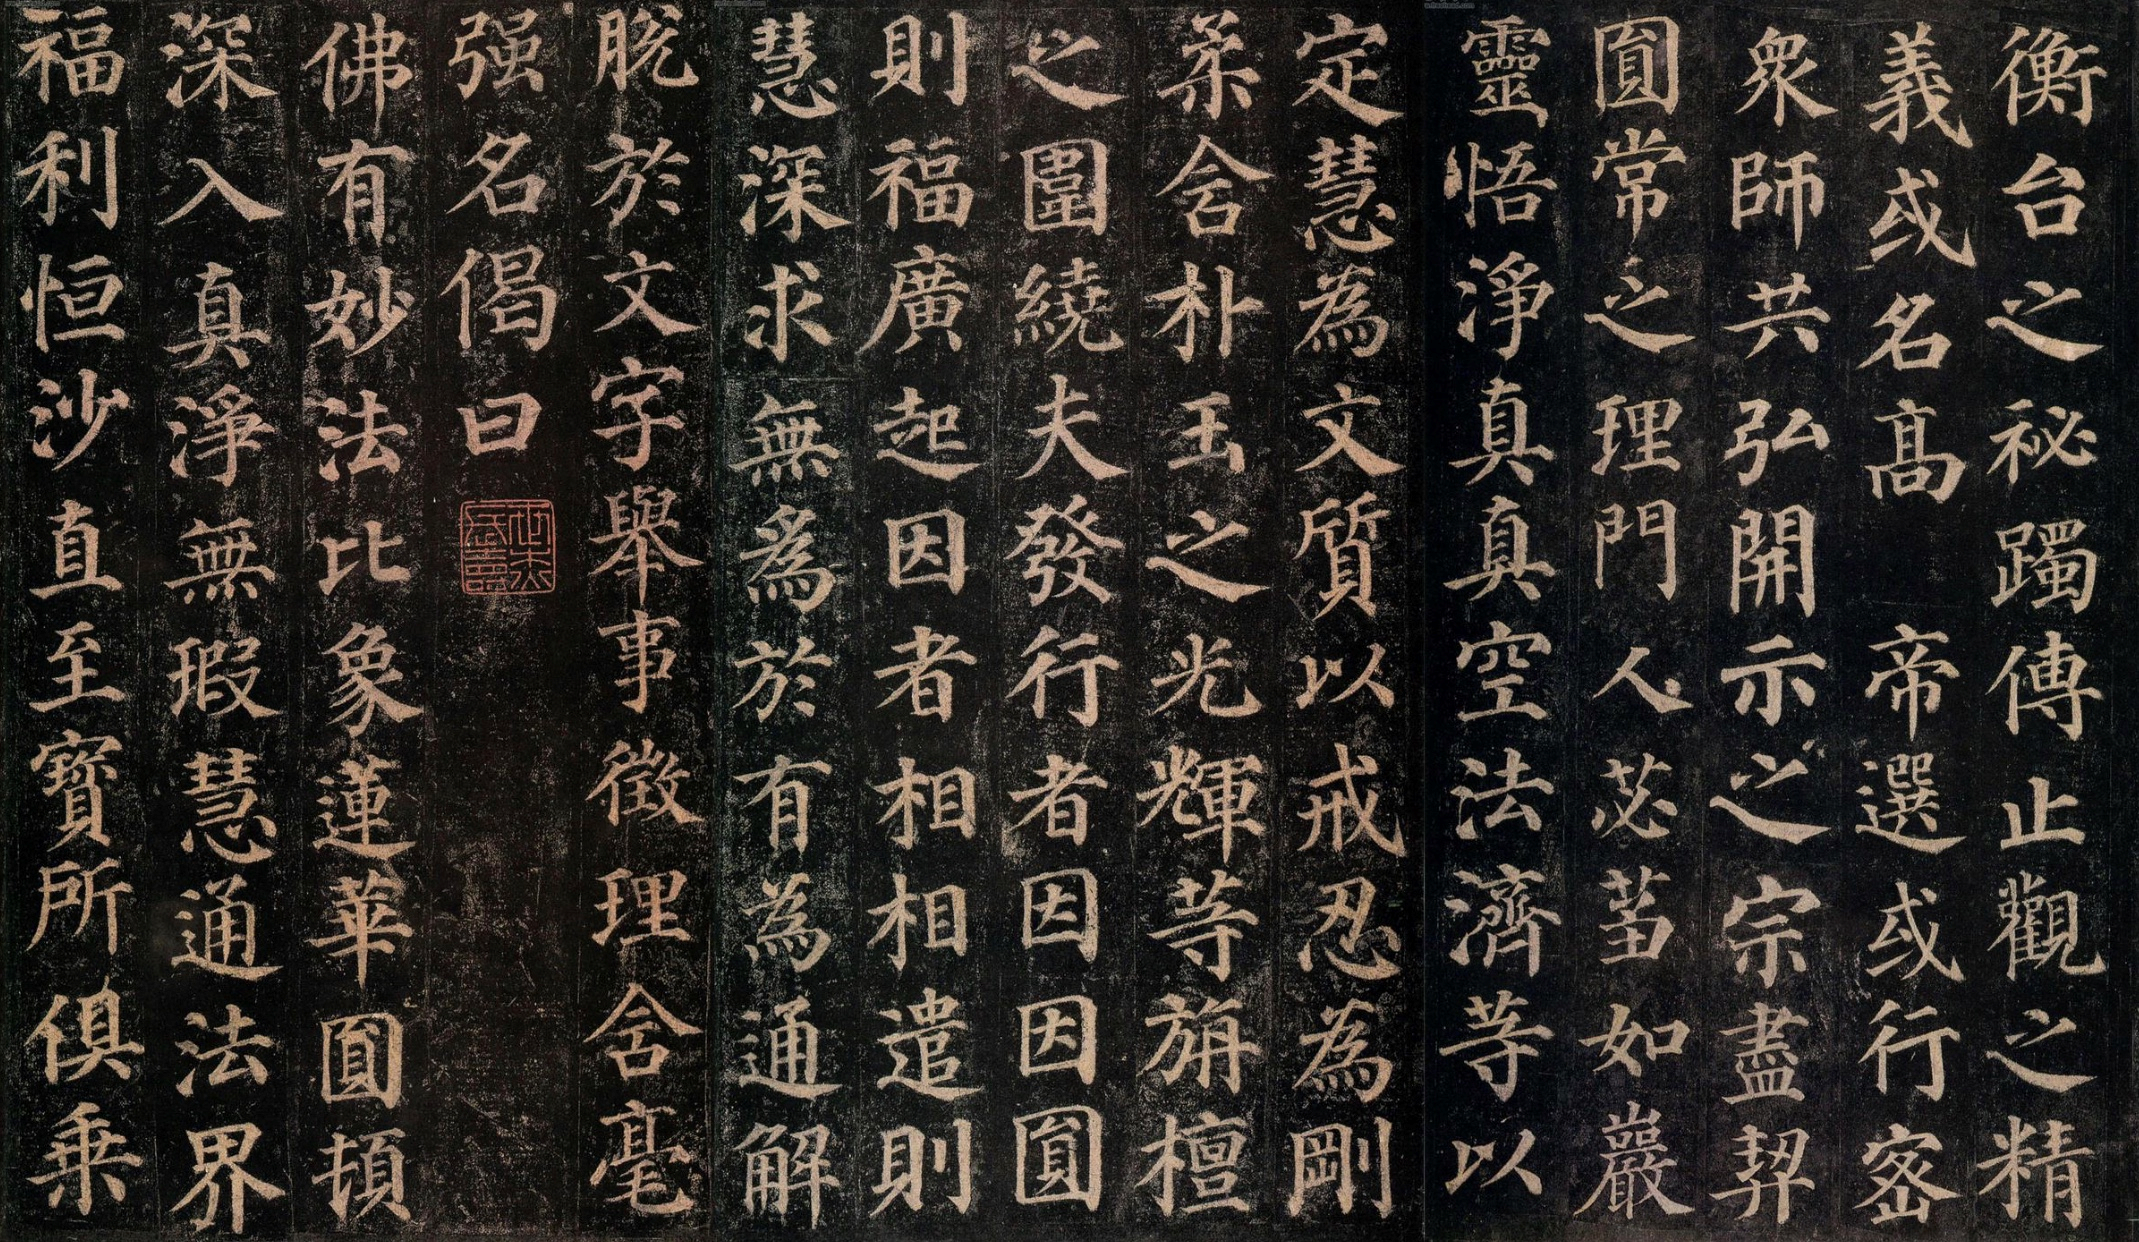 衡台之秘躅傳止觀之精
義或名高 帝選或行密
衆師共弘開示之宗盡契
圓常之理門人苾芻如巖
靈悟淨真真空法濟等以
定慧為文質以戒忍為剛
柔含朴玉之光輝等旃檀
之圍繞夫發行者因因圓
則福廣起因者相相遣則
慧深求無為於有為通解
脫於文字舉事徵理含毫
强名偈曰
佛有妙法比象蓮華圓頓
深入真淨無瑕慧通法界
福利恒沙直至寶所俱乘